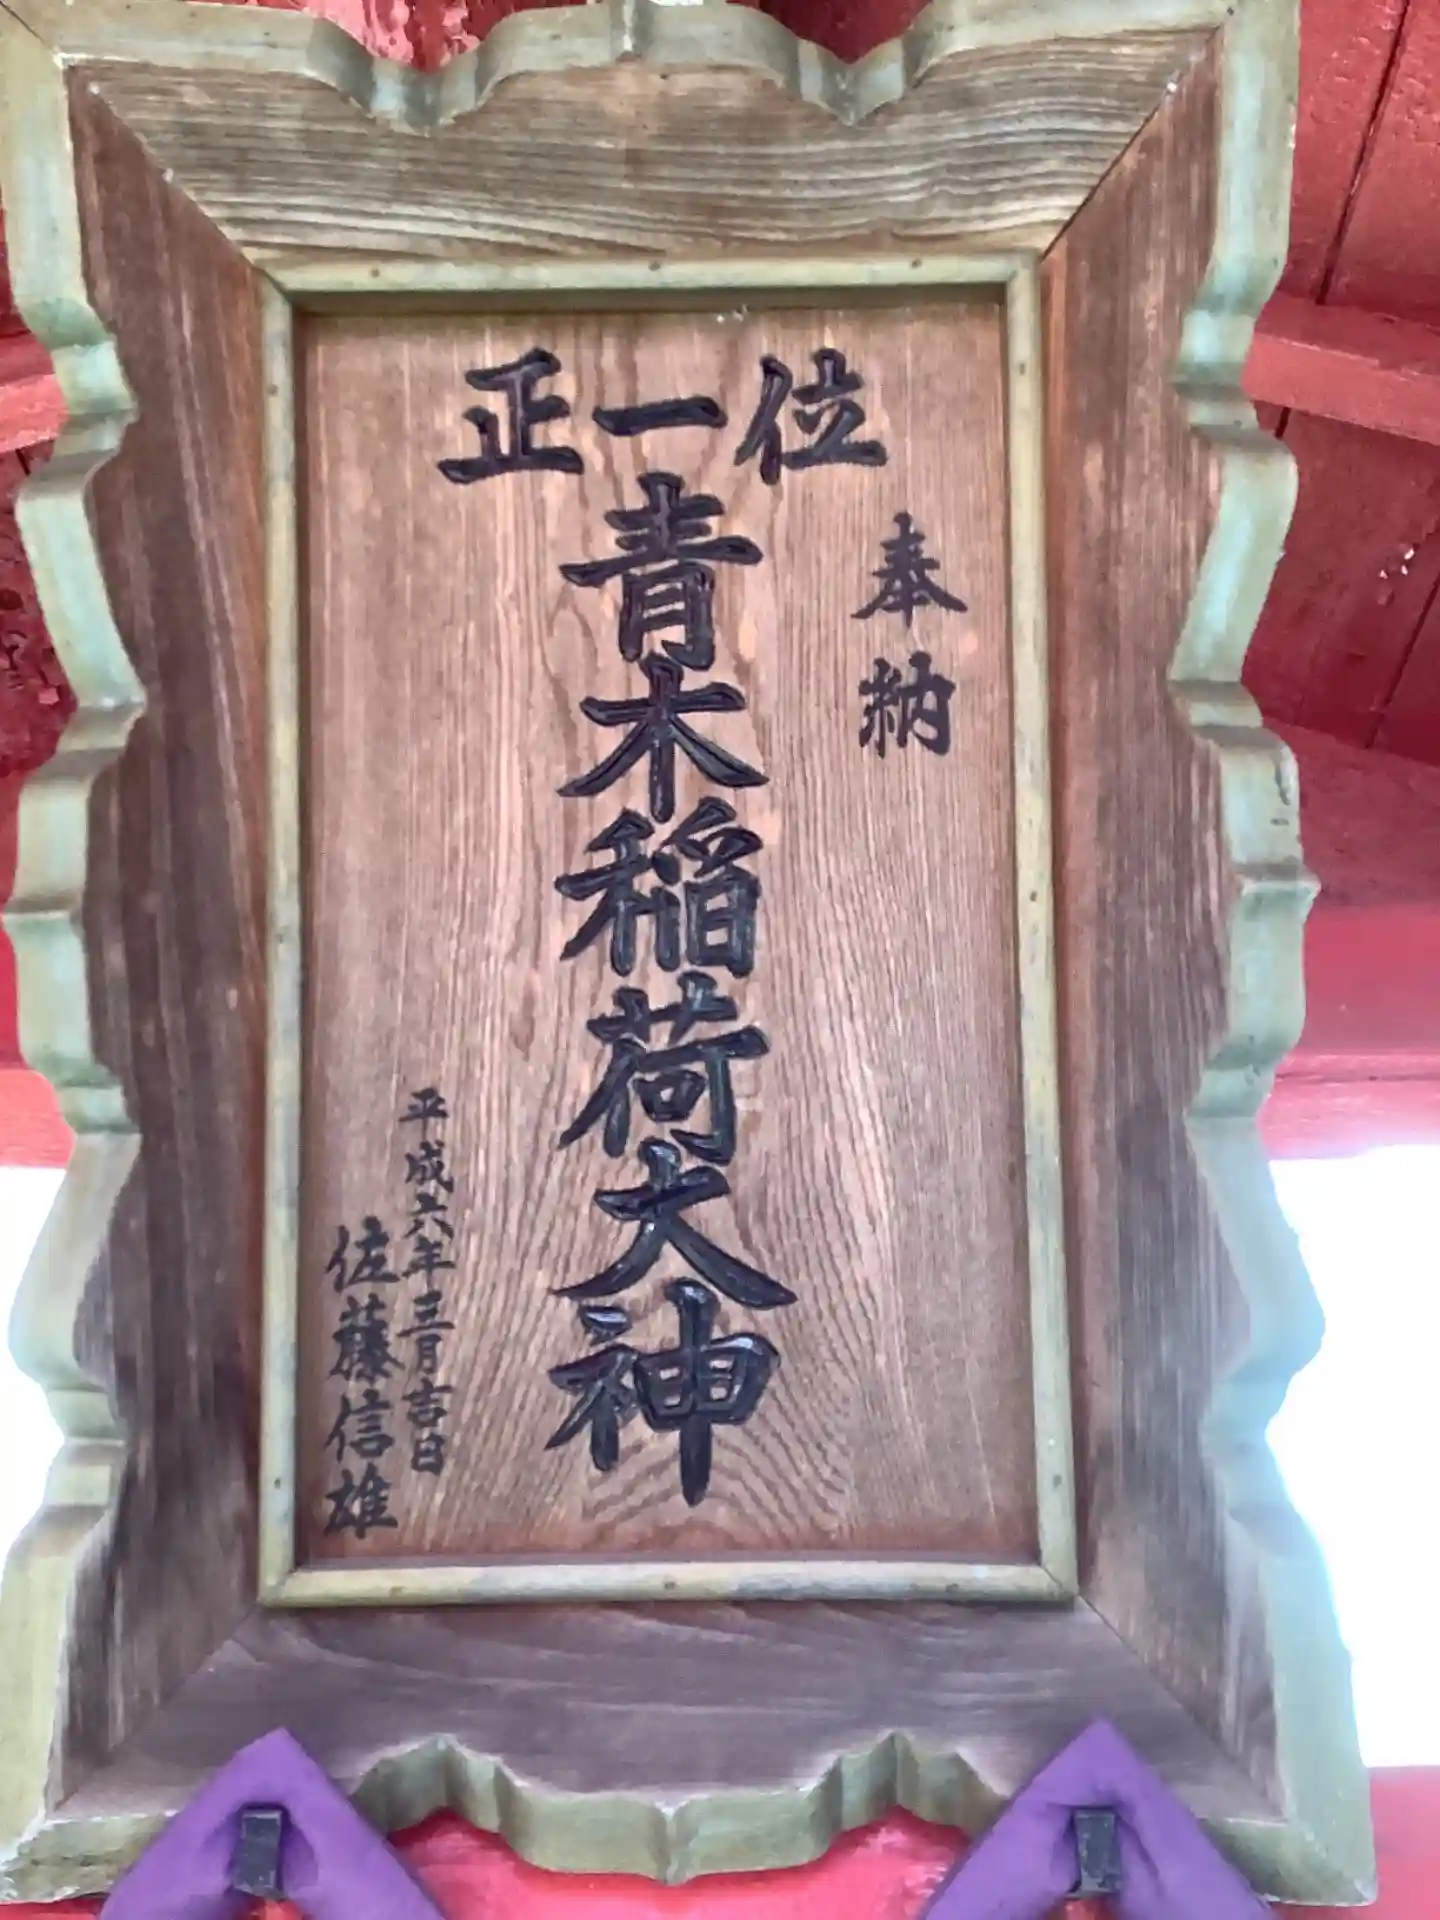 正一位
奉納
青木稲荷大神
平成六年三月吉日
佐藤信雄